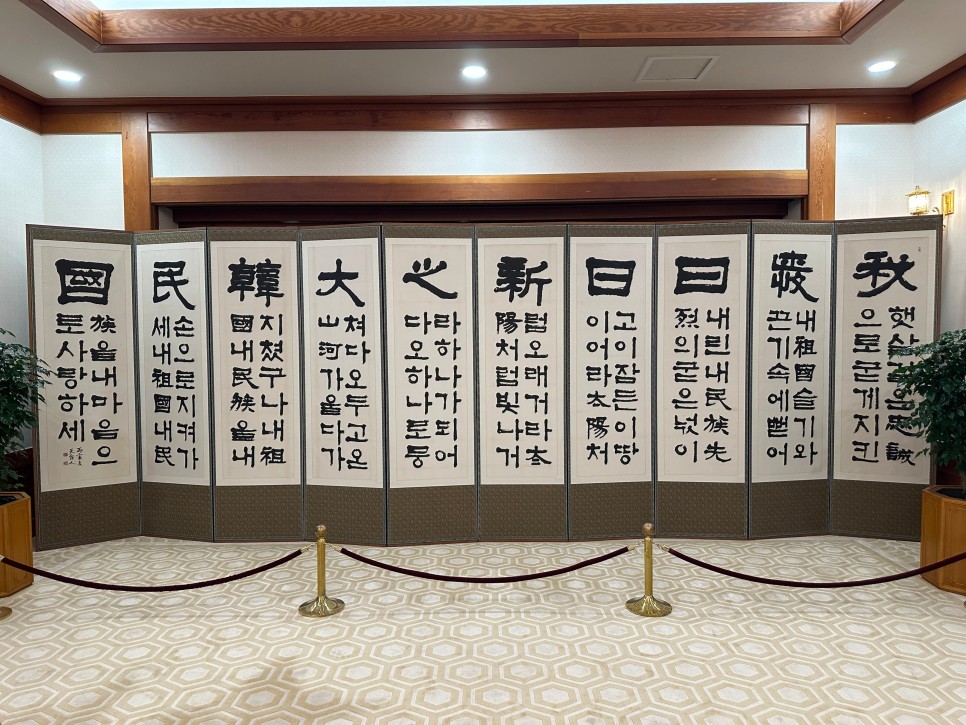 秋
햇살같은忠誠
으로굳게지킨
내祖國슬기와
끈기속에뻗어
日
내린내民族先
烈의굳은넋이
日
고이잠든이땅
이어라太陽처
新
럼오래거라太
陽처럼빛나거
之
라하나가되어
다오하나로뭉
大
쳐다오두고온
山河가울다가
韓
지쳤구나내祖
國내民族을내
民
손으로지켜가
세내祖國내民
國
族을내마음으
로사랑하세